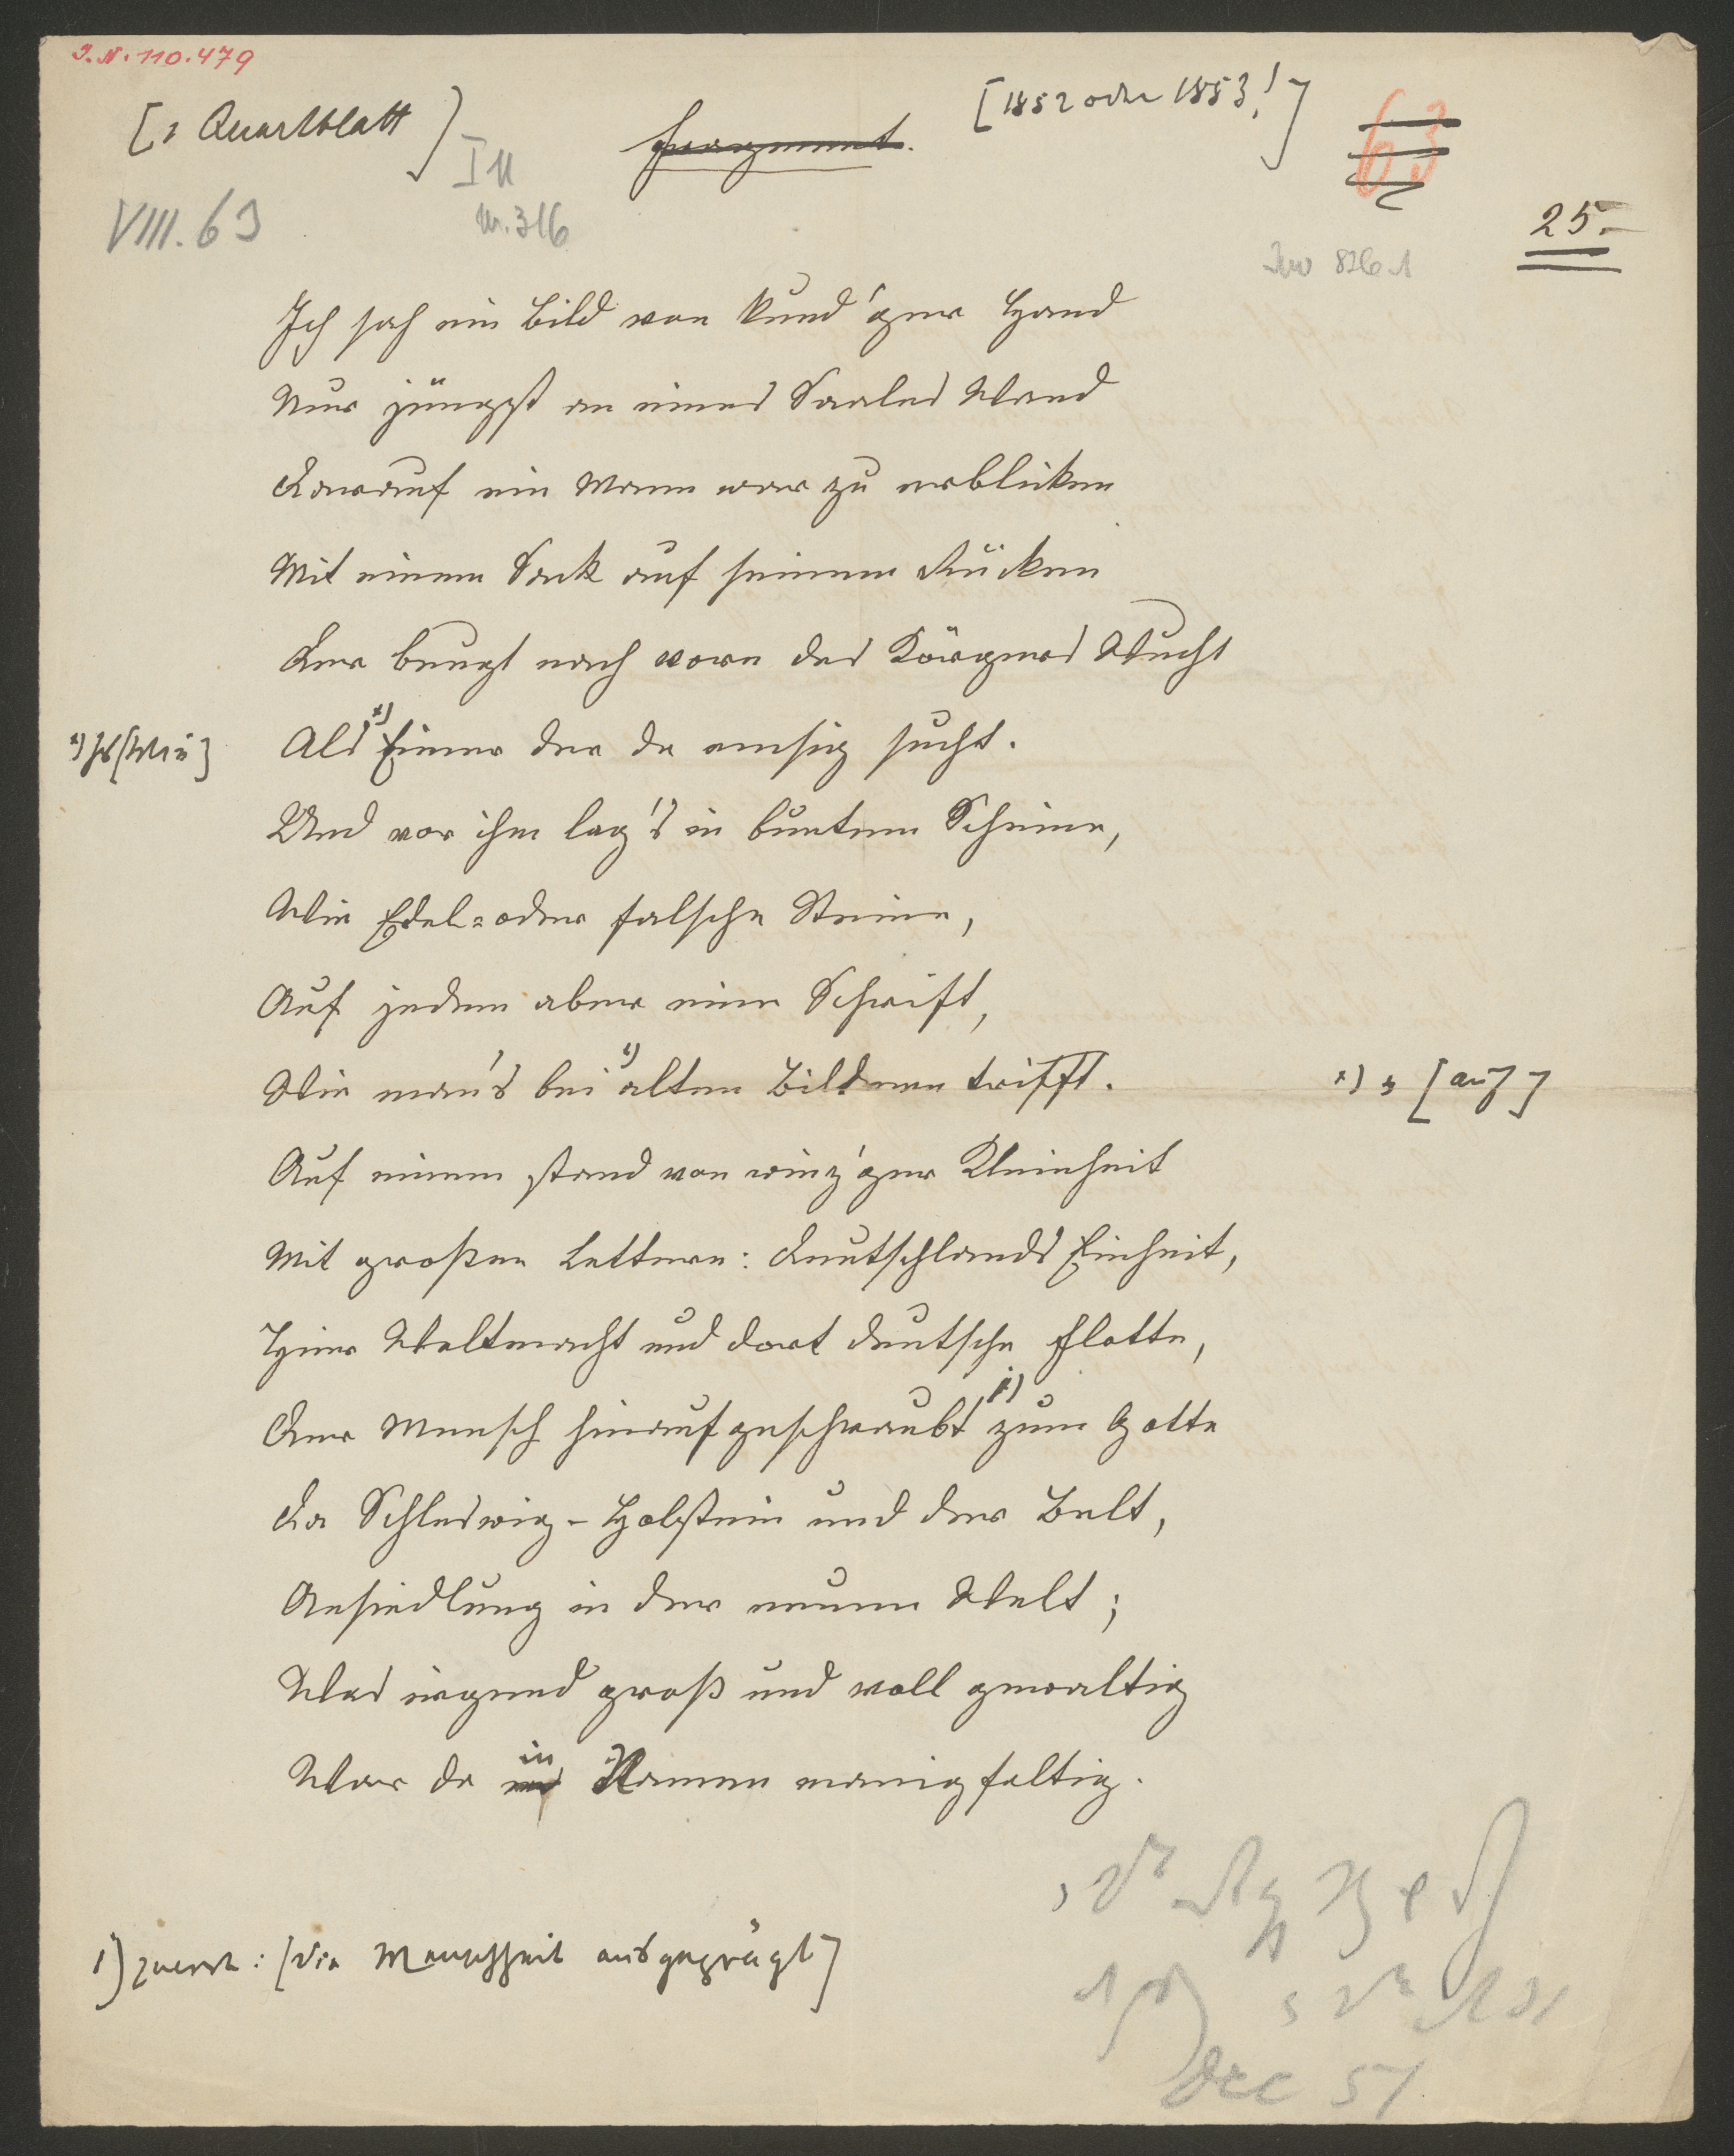 I. N. 110.479
[1 Quartblatt]
[1852 oder 1853!]
Fragment.
63
I 11
VIII. 63
Nr. 316
25.-
816 1
Ich sah ein Bild von kund'ger Hand
Nur jüngst an eines Saales Wand
Darauf ein Mann war zu erblicken
Mit einem Sack auf seinem Rücken
Der beugt nach vorn des Körpers Wucht
x) [Wie] Als x) Einer der da emsig sucht.
Und vor ihm lag's in buntem Scheine,
Wie Edel= oder falsche Steine,
Auf jedem aber eine Schrift,
Wie man's bei x) alten Bildern trifft. x) [auf]
Auf einem stand von winz'ger Kleinheit
Mit großen Lettern: Deutschlands Einheit,
Hier Weltmacht und dort deutsche Flotte,
Der Mensch hinaufgeschraubt 1) zum Gotte
Da Schleswig-Holstein und der Belt,
Ansiedlung in der neuen Welt;
Was irgend groß und voll gewaltig
War da in Namen manigfaltig.
1) zuerst: [die Menschheit ausgeprägt]
Dec 51